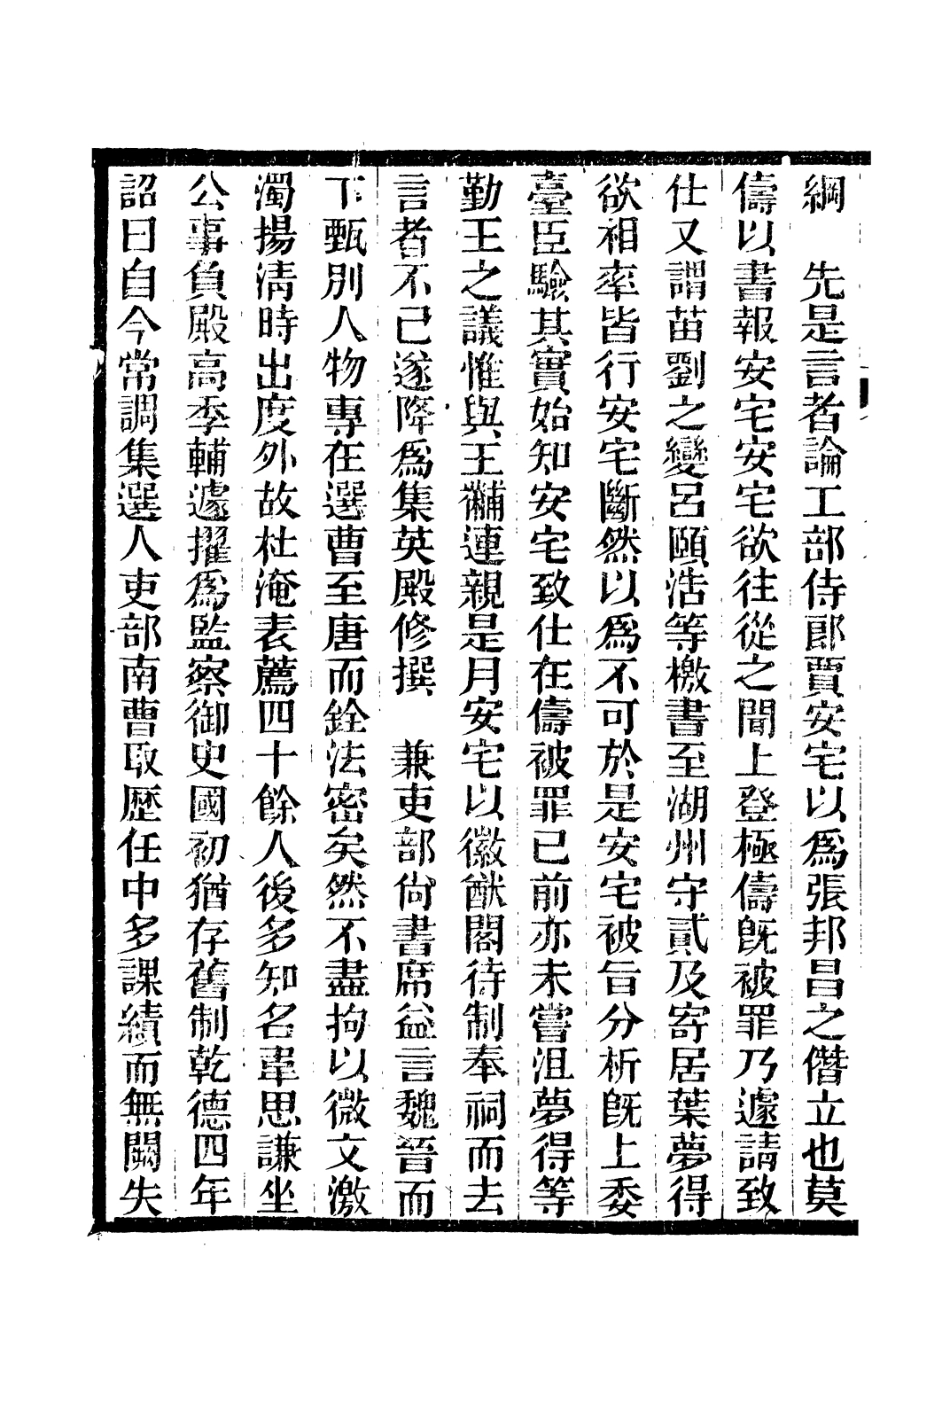 綱　先是言者論工部侍郎賈安宅以爲張邦昌之僭立也莫
儔以書報安宅安宅欲往從之聞上登極儔旣被罪乃遽請致
仕又謂苗劉之變呂頤浩等檄書至湖州守貳及寄居葉夢得
欲相率皆行安宅斷然以爲不可於是安宅被旨分析旣上委
臺臣驗其實始知安宅致仕在儔被罪已前亦未嘗沮夢得等
勤王之議惟與王黼連親是月安宅以徽猷閣待制奉祠而去
言者不已遂降爲集英殿修撰　兼吏部尙書席益言魏晉而
下甄別人物專在選曹至唐而銓法密矣然不盡拘以微文激
濁揚淸時出度外故杜淹表薦四十餘人後多知名韋思謙坐
公事負殿高季輔遽擢爲監察御史國初猶存舊制乾德四年
詔曰自今常調集選人吏部南曹取歷任中多課績而無闕失